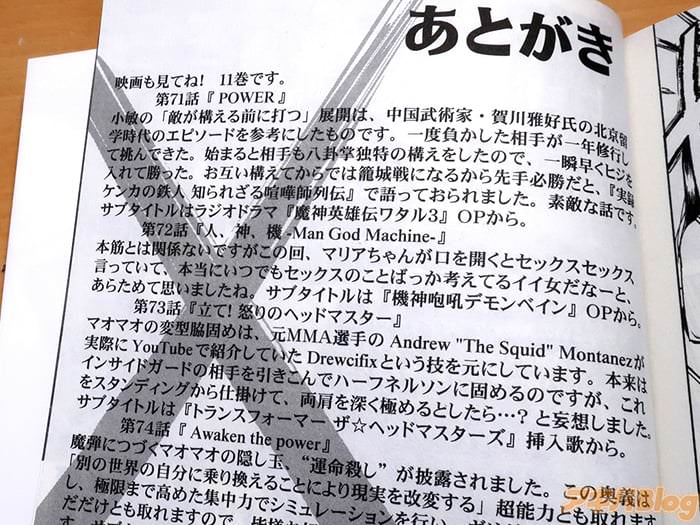 あとがき
映画も見てね! 11巻です。
第71話『POWER』
小敏の「敵が構える前に打つ」展開は、中国武術家・賀川雅好氏の北京留
学時代のエピソードを参考にしたものです。一度負かした相手が一年修行し
て挑んできた。始まると相手も八卦掌独特の構えをしたので、一瞬早くヒジを
入れて勝った。お互い構えてからでは籠城戦になるから先手必勝だと、『実録
ケンカの鉄人 知られざる喧嘩師列伝』で語っておられました。素敵な話です。
サブタイトルはラジオドラマ『魔神英雄伝ワタル3』OPから。
第72話『人、神、機 -Man God Machine-』
本筋とは関係ないですがこの回、マリアちゃんが口を開くとセックスセックス
言っていて、本当にいつでもセックスのことばっか考えてるイイ女だなーと、
あらためて思いましたね。サブタイトルは『機神咆吼デモンベイン』OPから。
第73話『立て! 怒りのヘッドマスター』
マオマオの変型脇固めは、元MMA選手の Andrew "The Squid" Montanezが
実際にYouTubeで紹介していたDrewcifixという技を元にしています。本来は
インサイドガードの相手を引きこんでハーフネルソンに固めるのですが、これ
をスタンディングから仕掛けて、両肩を深く極めるとしたら…? と妄想しました。
サブタイトルは『トランスフォーマー ザ☆ヘッドマスターズ』挿入歌から。
第74話『Awaken the power』
魔弾につづくマオマオの隠し玉、“運命殺し”が披露されました。この奥義は
「別の世界の自分に乗り換えることにより現実を改変する」超能力とも取れます
し、極限まで高めた集中力でシミュレーションを行い、
だだけとも取れますので、皆様